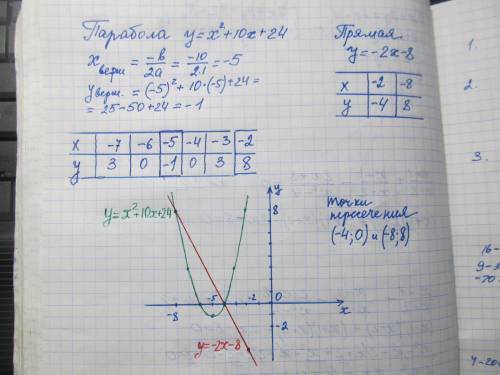 Парабола y=x²+10x+24
xверш = -b/2a = -10/2·1 = -5
yверш. = (-5)²+10·(-5)+24=
= 25-50+24 = -1
x -7 -6 -5 -4 -3 -2
y 3 0 -1 0 3 8
Прямая
y=-2x-8
x -2 -8
y -4 8
1.
2.
3.
y=x²+10x+24
y
8
-8
-5
-2
0
x
-2
y=-2x-8
Точки
пересечения
(-4;0) и (-8;8)
16-